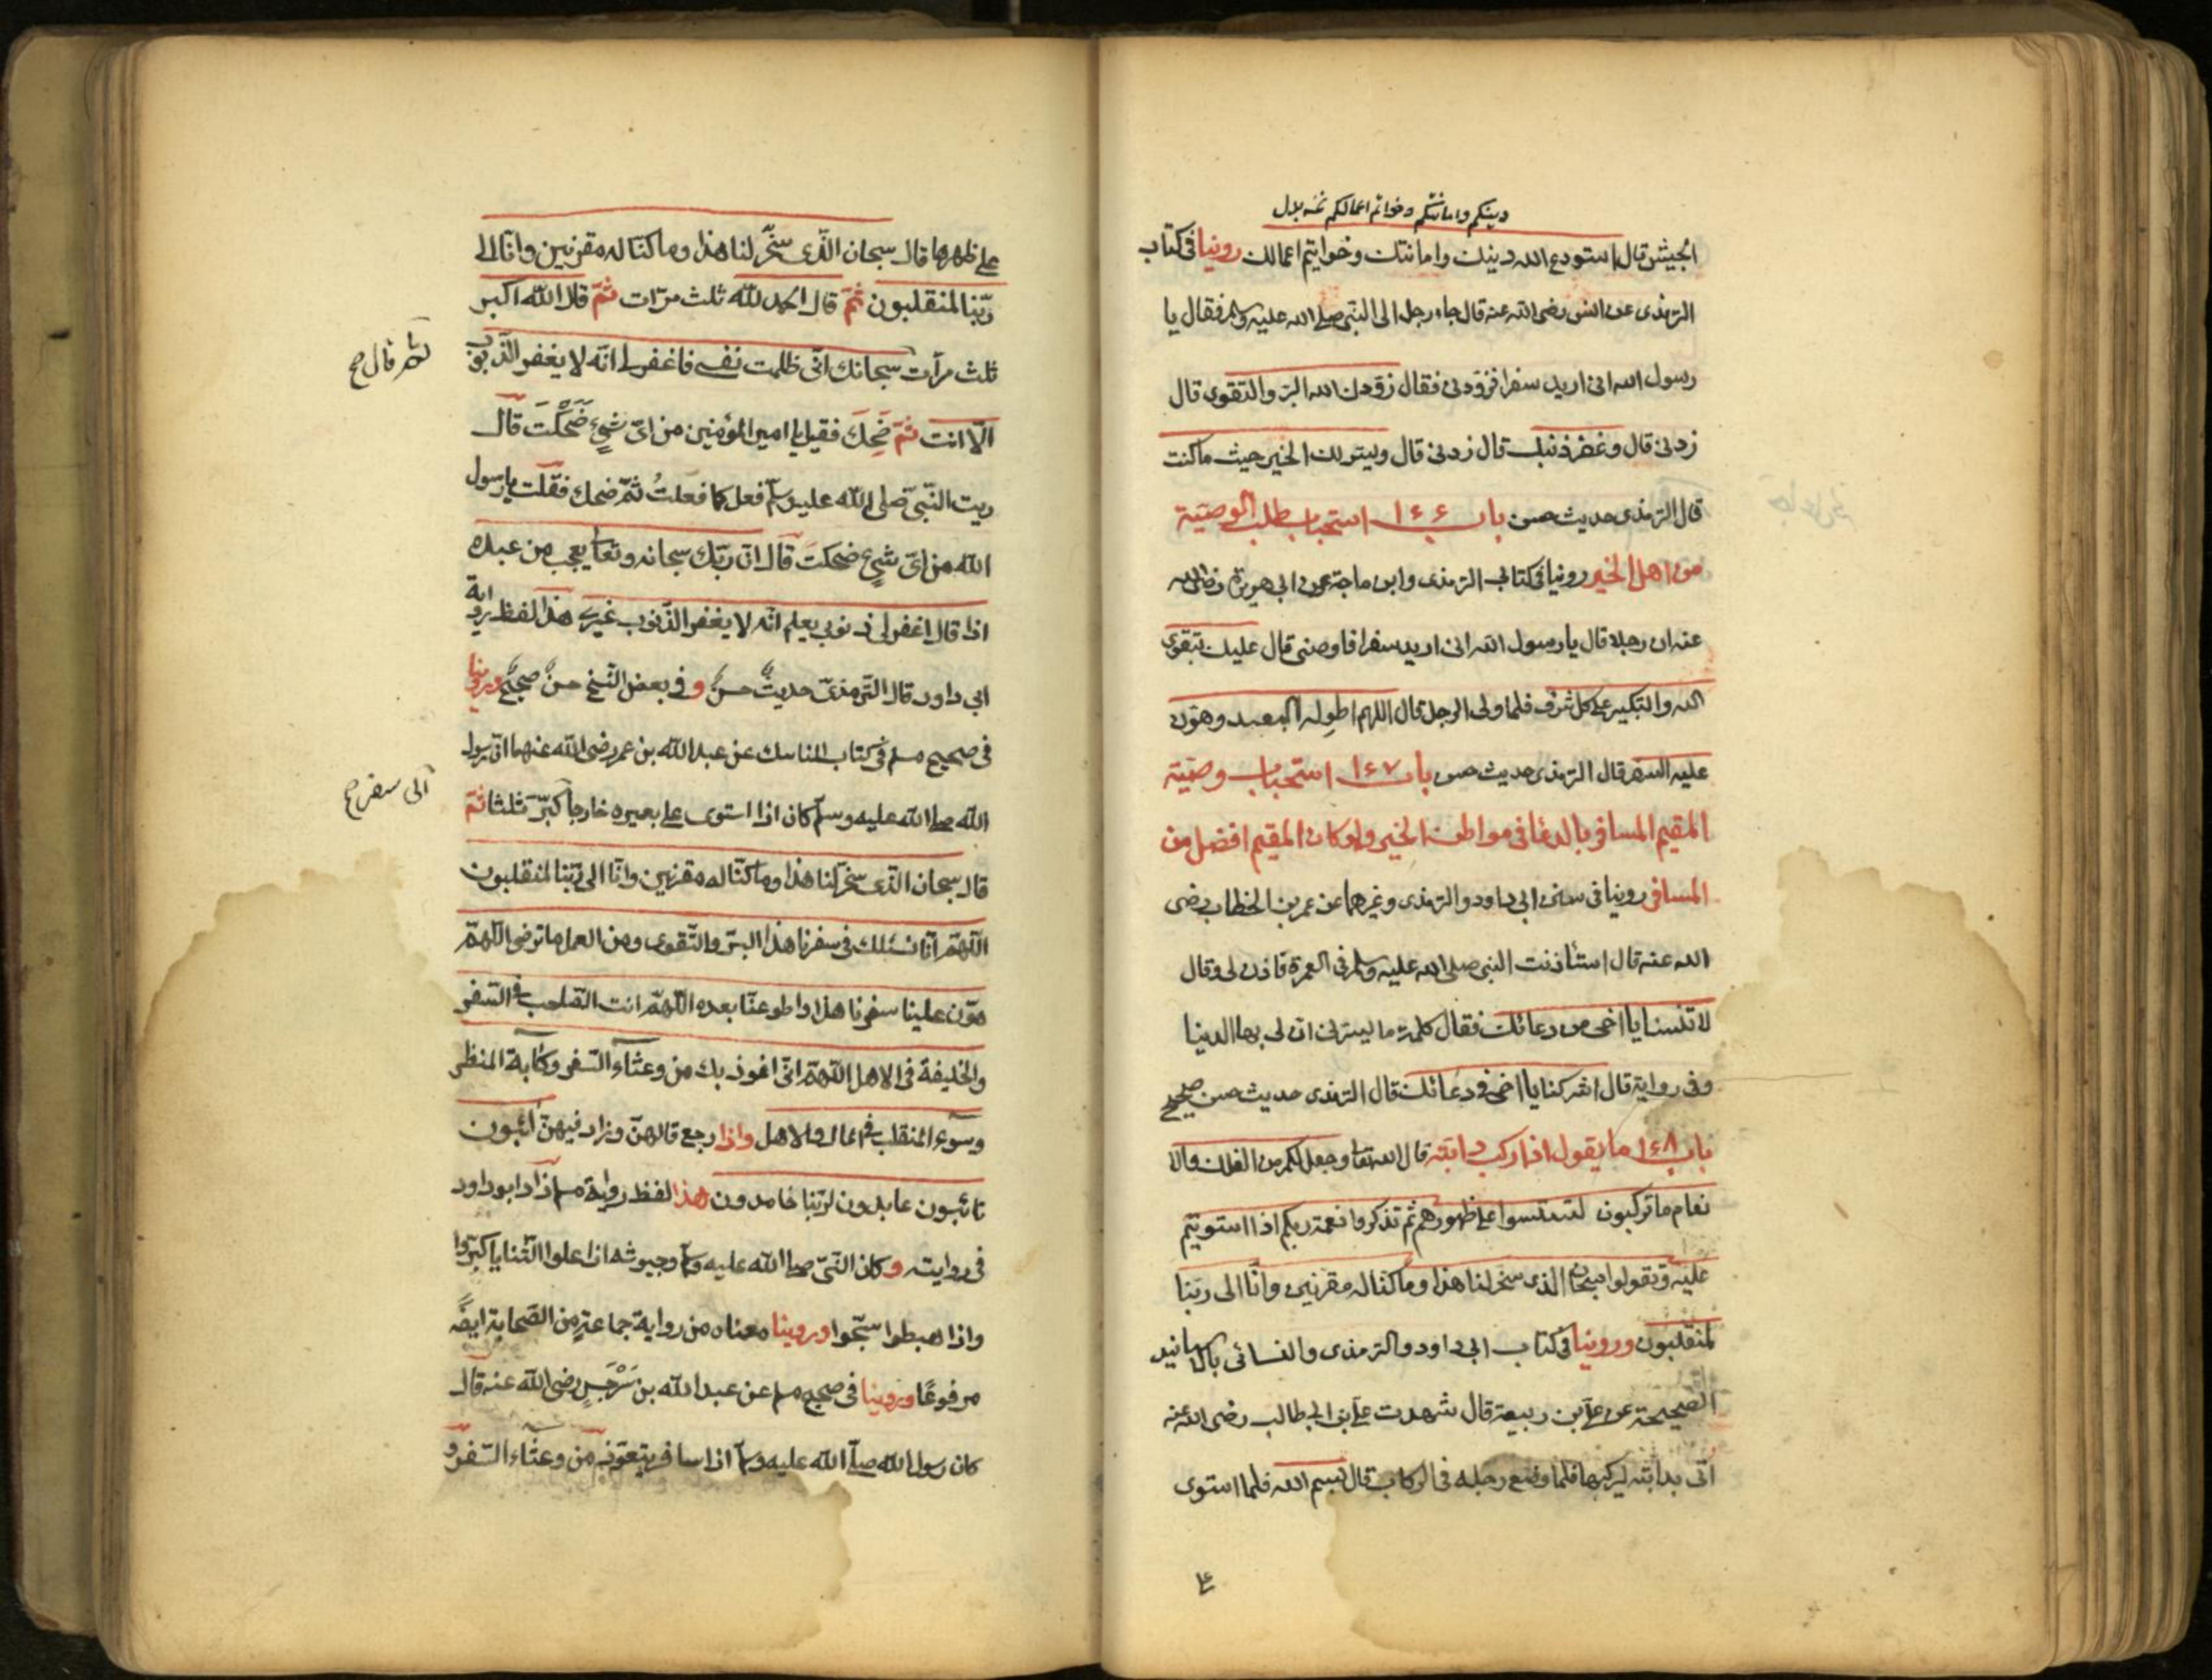 دينكم وامانتكم وخواتم اعمالكم نسه بدل
الجيش قال استودع الله دينك وامانتك وخوايتم اعمالك روينا فى كتاب
الترمذى عن انس رضى الله عنه قال جاء رجل الى النبى صلى الله عليه وسلم فقال يا
رسول الله انى اريد سفرا فزودنى فقال زودك الله البر والتقوى قال
زدنى قال وغفر ذنبك قال زدنى قال ويسر لك الخير حيث ما كنت
قال الترمذى حديث حسن باب ١٤٦ استحباب طلب الوصية
من اهل الخير روينا فى كتابى الترمذى وابن ماجة عن ابى هريرة رضى الله
عنه ان رجلا قال يا رسول الله انى اريد سفرا فاوصنى قال عليك بتقوى
الله والتكبير على كل شرف فلما ولى الرجل قال اللهم اطو له البعيد وهون
عليه السفر قال الترمذى حديث حسن باب ١٤٧ استحباب وصية
المقيم المسافر بالدعا فى مواطن الخير ولو كان المقيم افضل من
المسافر روينا فى سنن ابى داود والترمذى وغيرهما عن عمر بن الخطاب رضى
الله عنه قال استأذنت النبى صلى الله عليه وسلم فى العمرة فاذن لى وقال
لا تنسنا يا اخى من دعائك فقال كلمة ما يسرنى ان لى بها الدنيا
وفى رواية قال اشركنا يا اخى فى دعائك قال الترمذى حديث حسن صحيح
باب ١٤٨ ما يقول اذا ركب دابته قال الله تعا وجعل لكم من الفلك والا
نعام ما تركبون لتستسوا على ظهورهم ثم تذكروا نعمة ربكم اذا استويتم
عليه وتقولوا سبحان الذى سخر لنا هذا وما كنا له مقرنين وانا الى ربنا
لمنقلبون وروينا فى كتاب ابى داود والترمذى والنسائى بالاسانيد
الصحيحة عن على بن ربيعة قال شهدت على بن ابى طالب رضى الله عنه
اتى بدابته ليركبها فلما وضع رجله فى الركاب قال بسم الله فلما استوى
على ظهرها قال سبحان الّذى سخّر لنا هذا وما كنّا له مقرنين وانّا الى
ربّنا لمنقلبون ثمّ قال الحمد للّه ثلث مرّات ثمّ قال اللّه اكبر
ثلث مرآت سبحانك انّى ظلمت نفسى فاغفر لى انّه لا يغفر الذّنوب
ثم قال صح
الّا انت ثمّ ضَحِكَ فقيل يا امير المؤمنين من اىّ شىءٍ ضَحِكْتَ قال
ريت النّبىّ صلى اللّه عليه وسلم فعل كما فعلتُ ثمّ ضحك فقلت يا رسول
اللّه من اىّ شىءٍ ضحكتَ قال انّ ربّك سبحانه وتعا يعجب من عبده
اذا قال اغفر لى ذنوبى يعلم انّه لا يغفر الذّنوب غيرى هذا لفظ رواية
ابى داود قال التّرمذىّ حديثٌ حسنٌ وفى بعض النّسخ حسنٌ صحيحٌ وروينا
فى صحيح مسلم فى كتاب المناسك عن عبد اللّه بن عمر رضى اللّه عنهما انّ رسول
اللّه صلى اللّه عليه وسلّم كان اذا استوى على بعيره خارجاً كبّر ثلثا ثمّ
الى سفر صح
قال سبحان الّذى سخّر لنا هذا وما كنّا له مقرنين وانّا الى ربّنا لمنقلبون
اللّهمّ انّا نسئلك فى سفرنا هذا البرّ والتّقوى ومن العمل ما ترضى اللّهمّ
هوّن علينا سفرنا هذا واطو عنّا بعده اللّهمّ انت الصّاحب فى السّفر
والخليفة فى الاهل اللّهمّ انّى اعوذ بك من وعثآء السّفر وكابة المنظر
وسوء المنقلب فى المال والاهل واذا رجع قالهنّ وزاد فيهنّ ائبون
تائبون عابدون لربّنا حامدون هذا لفظ رواية مسلم زاد ابو داود
فى روايته وكان النّبىّ صلى اللّه عليه وسلم وجيوشه اذا علوا الثّنايا كبّروا
واذا هبطوا سبّحوا وروينا معناه من رواية جماعةٍ من الصّحابة ايضًا
مرفوعًا وروينا فى صحيح مسلم عن عبد اللّه بن سَرْجَسٍ رضى اللّه عنه قال
كان رسول اللّه صلى اللّه عليه وسلم اذا سافر يتعوّذ من وعثاء السّفر و